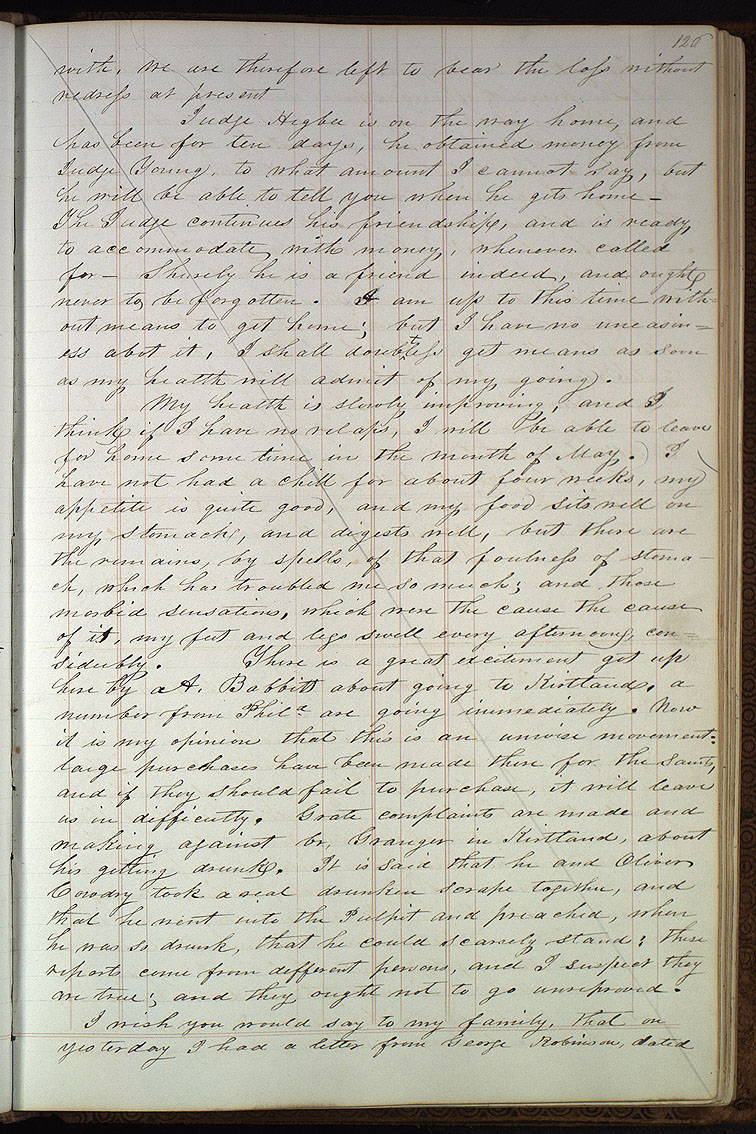 126
with, we are therefore left to bear the loss without
redress at present
Judge Higbee is on the way home, and
has been for ten days, he obtained money from
Judge Young, to what amount I cannot say, but
he will be able to tell you when he gets home—
The Judge continues his friendship, and is ready,
to accommodate with money, whenever called
for— Thereby he is a friend indeed, and ought
never to be forgotten. I am up to this time with=
out means to get home; but I have no uneasin=
ess abot it, I shall doubtless get means as soon
as my health will admit of my going.
My health is slowly improving, and I,
think if I have no relaps, I will be able to leave
for home some time in the month of May. I
have not had a chill for about four weeks, my
appetite is quite good, and my food sits well on
my stomach, and digests well, but there are
the remains, by spells, of that foulness of stoma-
ch, which has troubled me so much; and those
morbid sensations, which were the cause the cause
of it, my feet and legs swell every afternoon, con-
siderbly. There is a great excitement got up
here by A. Babbitt about going to Kirtland. a
number from Phila are going immediately. Now
it is my opinion that this is an unwise movement:
large purchases have been made there for the Saints,
and if they should fail to purchase, it will leave
us in difficulty. Grate complaints are made and
making against br, Granger in Kirtland, about
his getting drunk. It is said that he and Oliver
Cowdry took a real drunken scrape together, and
that he went into the Pulpit and preached, when
he was so drunk, that he could scarsely stand; these
reports come from different persons, and I suspect they
are true; and they ought not to go unreproved.
I wish you would say to my family, that on
yesterday I had a letter from George Robinson, dated